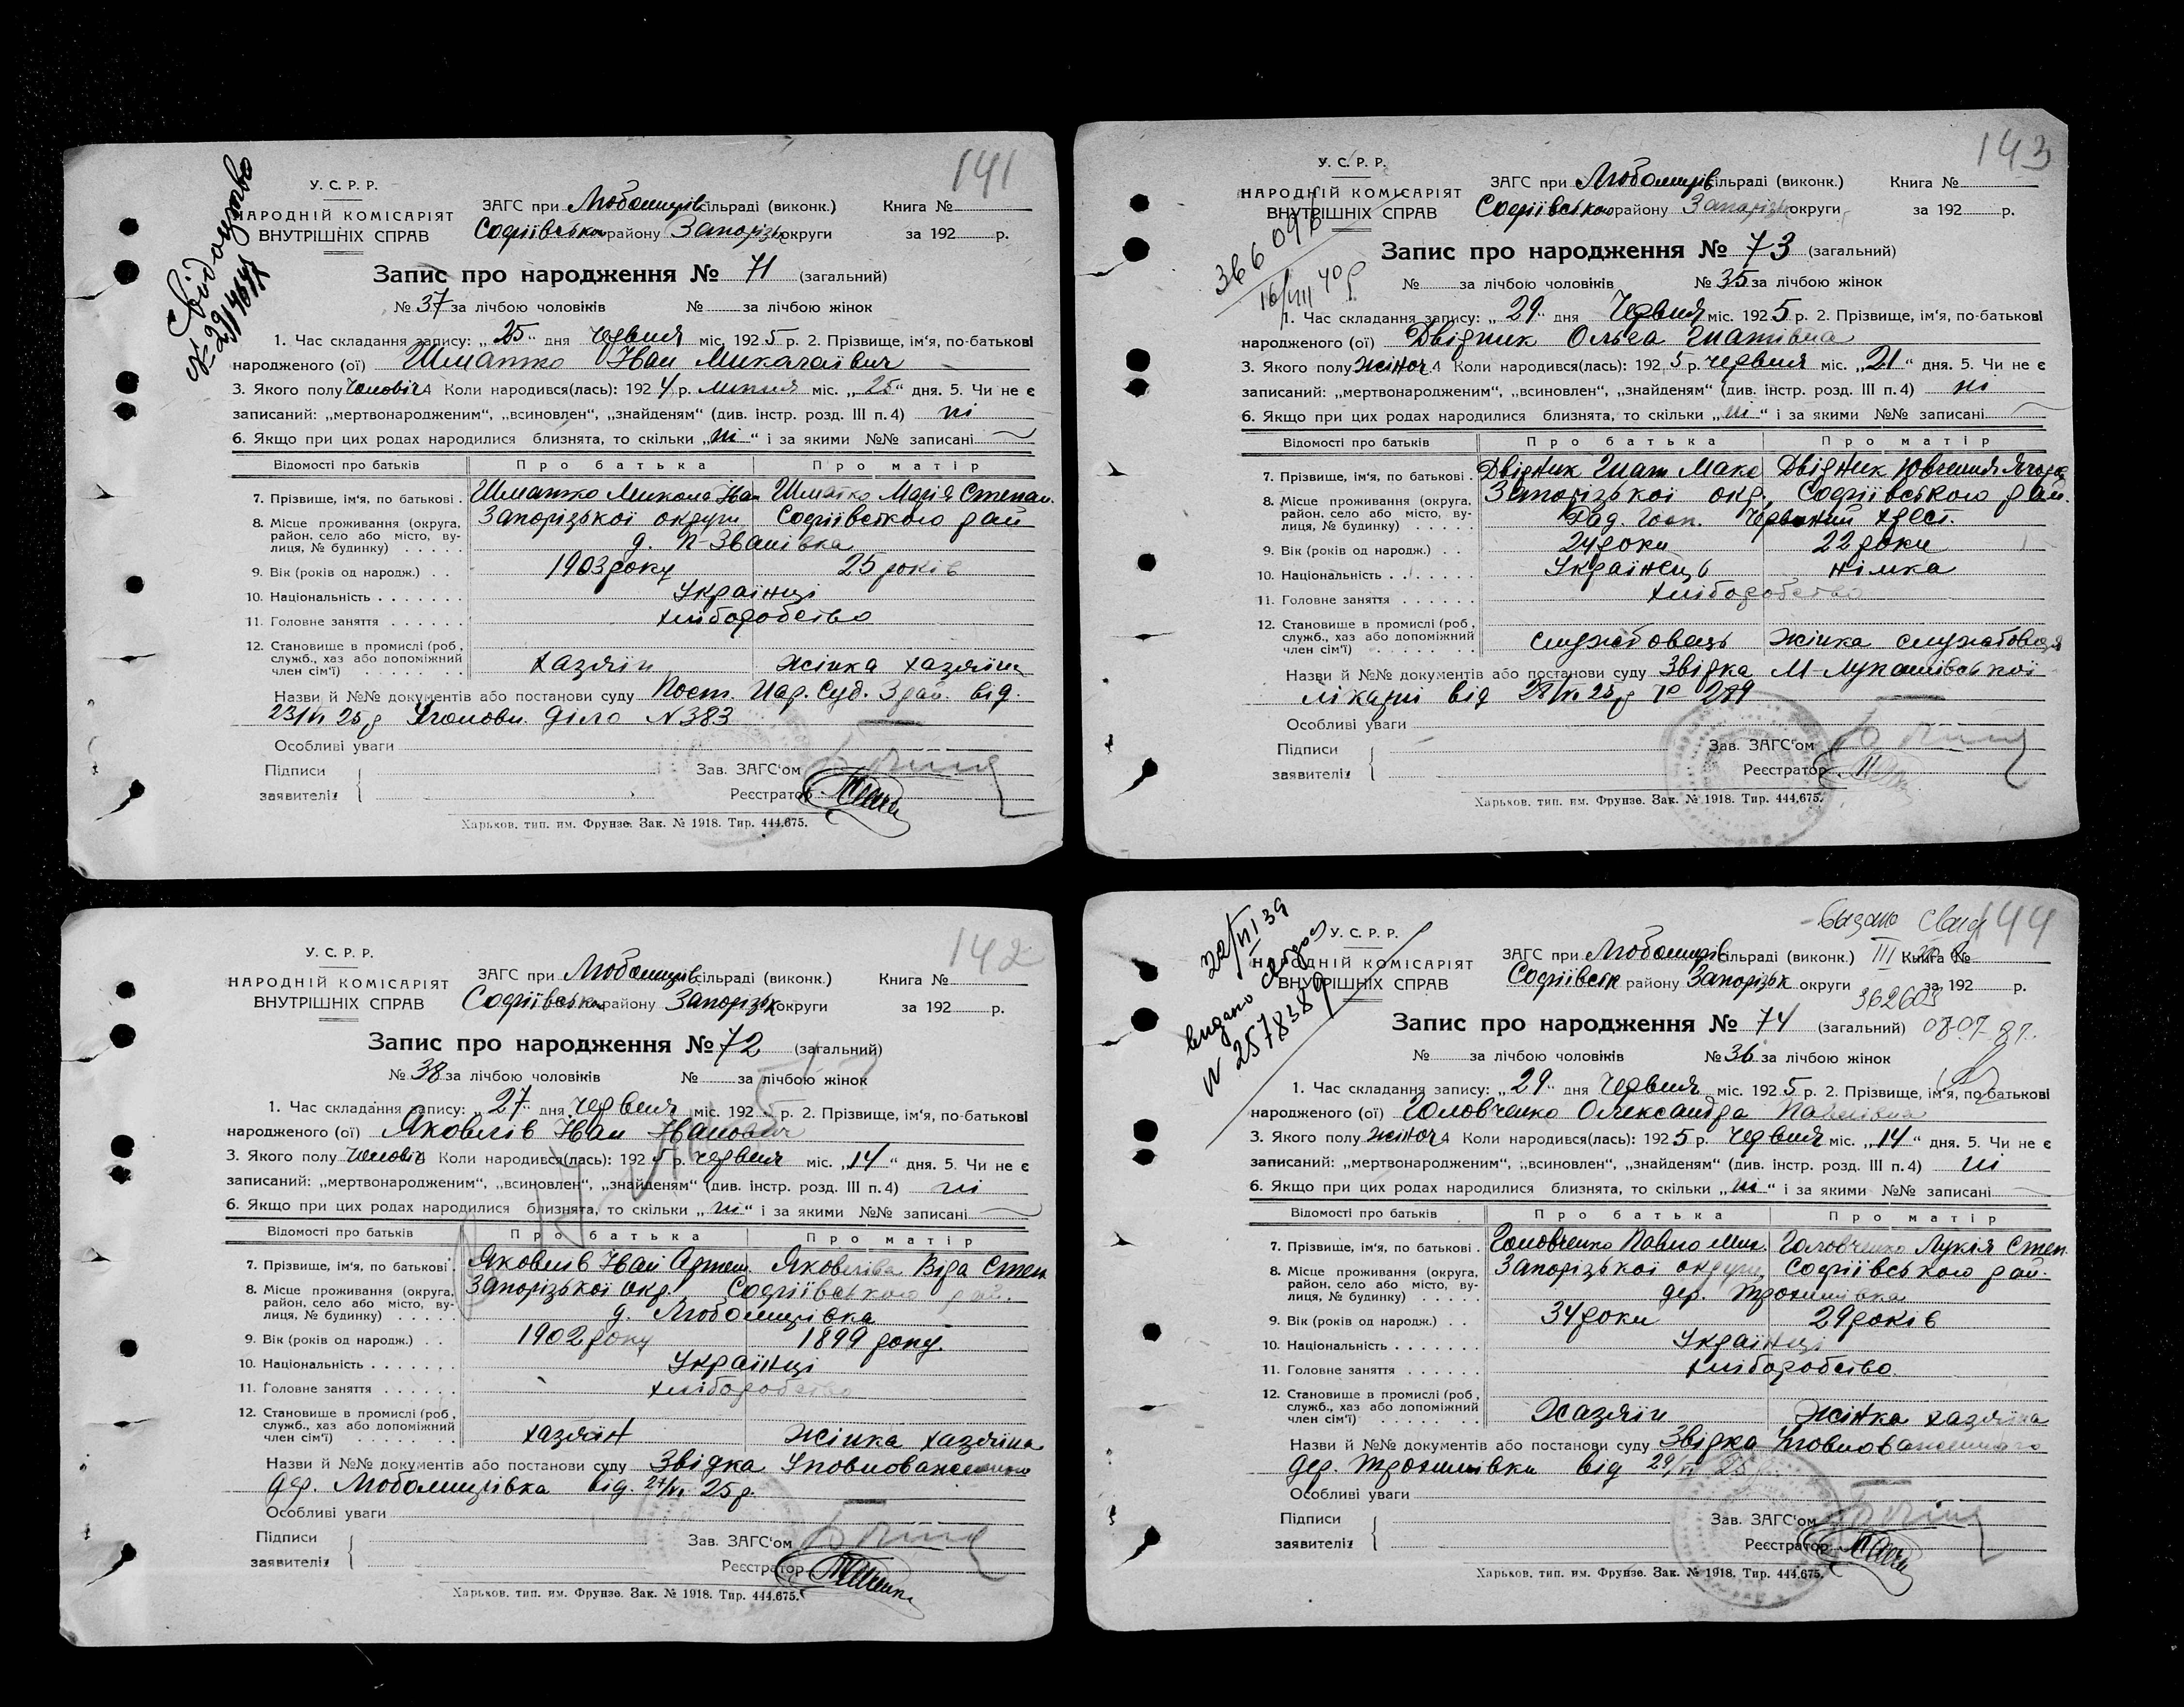 141
Свідоцтво
У. С. Р. Р.
НАРОДНІЙ КОМІСАРІЯТ
ВНУТРІШНІХ СПРАВ
ЗАГС при Любомирів сільраді (виконк.) Книга №
Софіївсько району Запорізь округи за 192 р.
Запис про народження № 71 (загальний)
№ 37 за лічбою чоловіків № за лічбою жінок
1. Час складання запису: „25" дня червня міс. 1925 р. 2. Прізвище, ім'я, по-батькові
народженого (ої) Шматко Іван Миколаївич
3. Якого полу чоловіч 4 Коли народився(лась): 1924 р. липня міс. „25" дня. 5. Чи не є
записаний: „мертвонародженим", „всиновлен", „знайденям" (див. інстр. розд. III п. 4) ні
6. Якщо при цих родах народилися близнята, то скільки „ні" і за якими №№ записані
Відомості про батьків Про батька Про матір
7. Прізвище, ім'я, по батькові . Шматко Микола Іва Шматко Марія Степан.
8. Місце проживання (округа, район, село або місто, вулиця, № будинку) Запорізької округи Софіївського рай
д. П-Званівка
9. Вік (років од народж.) . . 1903 року 25 років
10. Національність . . . . . . . Українці
11. Головне заняття . . . . . . хліборобство
12. Становище в промислі (роб., служб., хаз або допоміжний член сім'ї) хазяїн жінка хазяїна
Назви й №№ документів або постанови суду Пост. Нар. Суд. 3 рай. від.
23/VI 25 р Уголовн. діло N 383
Особливі уваги
Підписи
заявителів
Зав. ЗАГС'ом
Реєстратор
Харьков. тип. им. Фрунзе. Зак. № 1918. Тир. 444.675.
143
366096
16/VIII 40 р
У. С. Р. Р.
НАРОДНІЙ КОМІСАРІЯТ
ВНУТРІШНІХ СПРАВ
ЗАГС при Любомирів сільраді (виконк.) Книга №
Софіївського району Запорізь округи за 192 р.
Запис про народження № 73 (загальний)
№ за лічбою чоловіків № 35 за лічбою жінок
1. Час складання запису: „29" дня Червня міс. 1925 р. 2. Прізвище, ім'я, по-батькові
народженого (ої) Двідник Ольга Гнатівна
3. Якого полу жіноч 4 Коли народився(лась): 1925 р. червня міс. „21" дня. 5. Чи не є
записаний: „мертвонародженим", „всиновлен", „знайденям" (див. інстр. розд. III п. 4) ні
6. Якщо при цих родах народилися близнята, то скільки „ні" і за якими №№ записані
Відомості про батьків Про батька Про матір
7. Прізвище, ім'я, по батькові . Двідник Гнат Макс Двідник
8. Місце проживання (округа, район, село або місто, вулиця, № будинку) Запорізької окр. Софіївського рай.
Рад. Госп. Червоний хрест.
9. Вік (років од народж.) . . 24 роки 22 роки
10. Національність . . . . . . . Українець німка
11. Головне заняття . . . . . . хліборобство
12. Становище в промислі (роб., служб., хаз або допоміжний член сім'ї) службовець жінка службовця
Назви й №№ документів або постанови суду Звідка М-Лукашівської
лікарні від 28/VI 25 р № 289
Особливі уваги
Підписи
заявителів
Зав. ЗАГС'ом
Реєстратор
Харьков. тип. им. Фрунзе. Зак. № 1918. Тир. 444.675.
142
У. С. Р. Р.
НАРОДНІЙ КОМІСАРІЯТ
ВНУТРІШНІХ СПРАВ
ЗАГС при Любомирів сільраді (виконк.) Книга №
Софіївсько району Запорізьк округи за 192 р.
Запис про народження № 72 (загальний)
№ 38 за лічбою чоловіків № за лічбою жінок
1. Час складання запису: „27" дня червня міс. 1925 р. 2. Прізвище, ім'я, по-батькові
народженого (ої) Яковлів Іван Іванович
3. Якого полу чоловіч Коли народився(лась): 1925 р. червня міс. „14" дня. 5. Чи не є
записаний: „мертвонародженим", „всиновлен", „знайденям" (див. інстр. розд. III п. 4) ні
6. Якщо при цих родах народилися близнята, то скільки „ні" і за якими №№ записані
Відомості про батьків Про батька Про матір
7. Прізвище, ім'я, по батькові . Яковлів Іван Артем Яковліва Віра Степ
8. Місце проживання (округа, район, село або місто, вулиця, № будинку) Запорізької окр. Софіївського рай.
д. Любомирівка
9. Вік (років од народж.) . . 1902 року 1899 року
10. Національність . . . . . . . Українці
11. Головне заняття . . . . . . хліборобство
12. Становище в промислі (роб., служб., хаз або допоміжний член сім'ї) хазяїн жінка хазяїна
Назви й №№ документів або постанови суду Звідка Уповноваженного
дер. Любомирівка від. 27/VI 25 р.
Особливі уваги
Підписи
заявителів
Зав. ЗАГС'ом
Реєстратор
Харьков. тип. им. Фрунзе. Зак. № 1918. Тир. 444.675.
144
22/VI 39
видано
N 2578389
362603
08-07-87.
У. С. Р. Р.
НАРОДНІЙ КОМІСАРІЯТ
ВНУТРІШНІХ СПРАВ
ЗАГС при Любомирів сільраді (виконк.) Книга №
Софіївськ району Запорізьк округи за 192 р.
Запис про народження № 74 (загальний)
№ за лічбою чоловіків № 36 за лічбою жінок
1. Час складання запису: „29" дня Червня міс. 1925 р. 2. Прізвище, ім'я, по-батькові
народженого (ої) Головченко Олександра Павлівна
3. Якого полу жіноч 4 Коли народився(лась): 1925 р. червня міс. „14" дня. 5. Чи не є
записаний: „мертвонародженим", „всиновлен", „знайденям" (див. інстр. розд. III п. 4) ні
6. Якщо при цих родах народилися близнята, то скільки „ні" і за якими №№ записані
Відомості про батьків Про батька Про матір
7. Прізвище, ім'я, по батькові . Головченко Павло Мик Головченко Лукія Степ.
8. Місце проживання (округа, район, село або місто, вулиця, № будинку) Запорізької округи Софіївського рай.
дер. Трохимівка
9. Вік (років од народж.) . . 34 роки 29 років
10. Національність . . . . . . . Українці
11. Головне заняття . . . . . . хліборобство
12. Становище в промислі (роб., служб., хаз або допоміжний член сім'ї) Хазяїн жінка хазяїна
Назви й №№ документів або постанови суду Звідка Уповноваженного
дер. Трохимівки від 29/VI 25 р.
Особливі уваги
Підписи
заявителів
Зав. ЗАГС'ом
Реєстратор
Харьков. тип. им. Фрунзе. Зак. № 1918. Тир. 444.675.